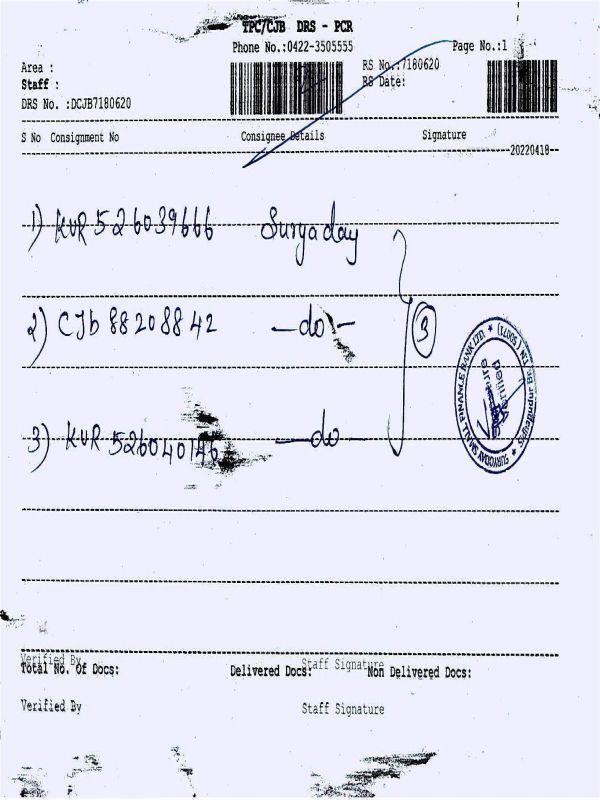 TPC/CJB DRS - PCR
Phone No.:0422-3505555 Page No.:1
Area : RS No.:7180620
Staff : RS Date:
DRS No. :DCJB7180620
S No Consignment No Consignee Details Signature
20220418
1) KUR 526039666 Suryaday
2) CJb 88208842 -do-
3
3) KUR 526040146 -do-
SURYODAY SMALL FINANCE BANK LTD.
Verified By Staff Signature
Total No. Of Docs: Delivered Docs: Non Delivered Docs:
Verified By Staff Signature